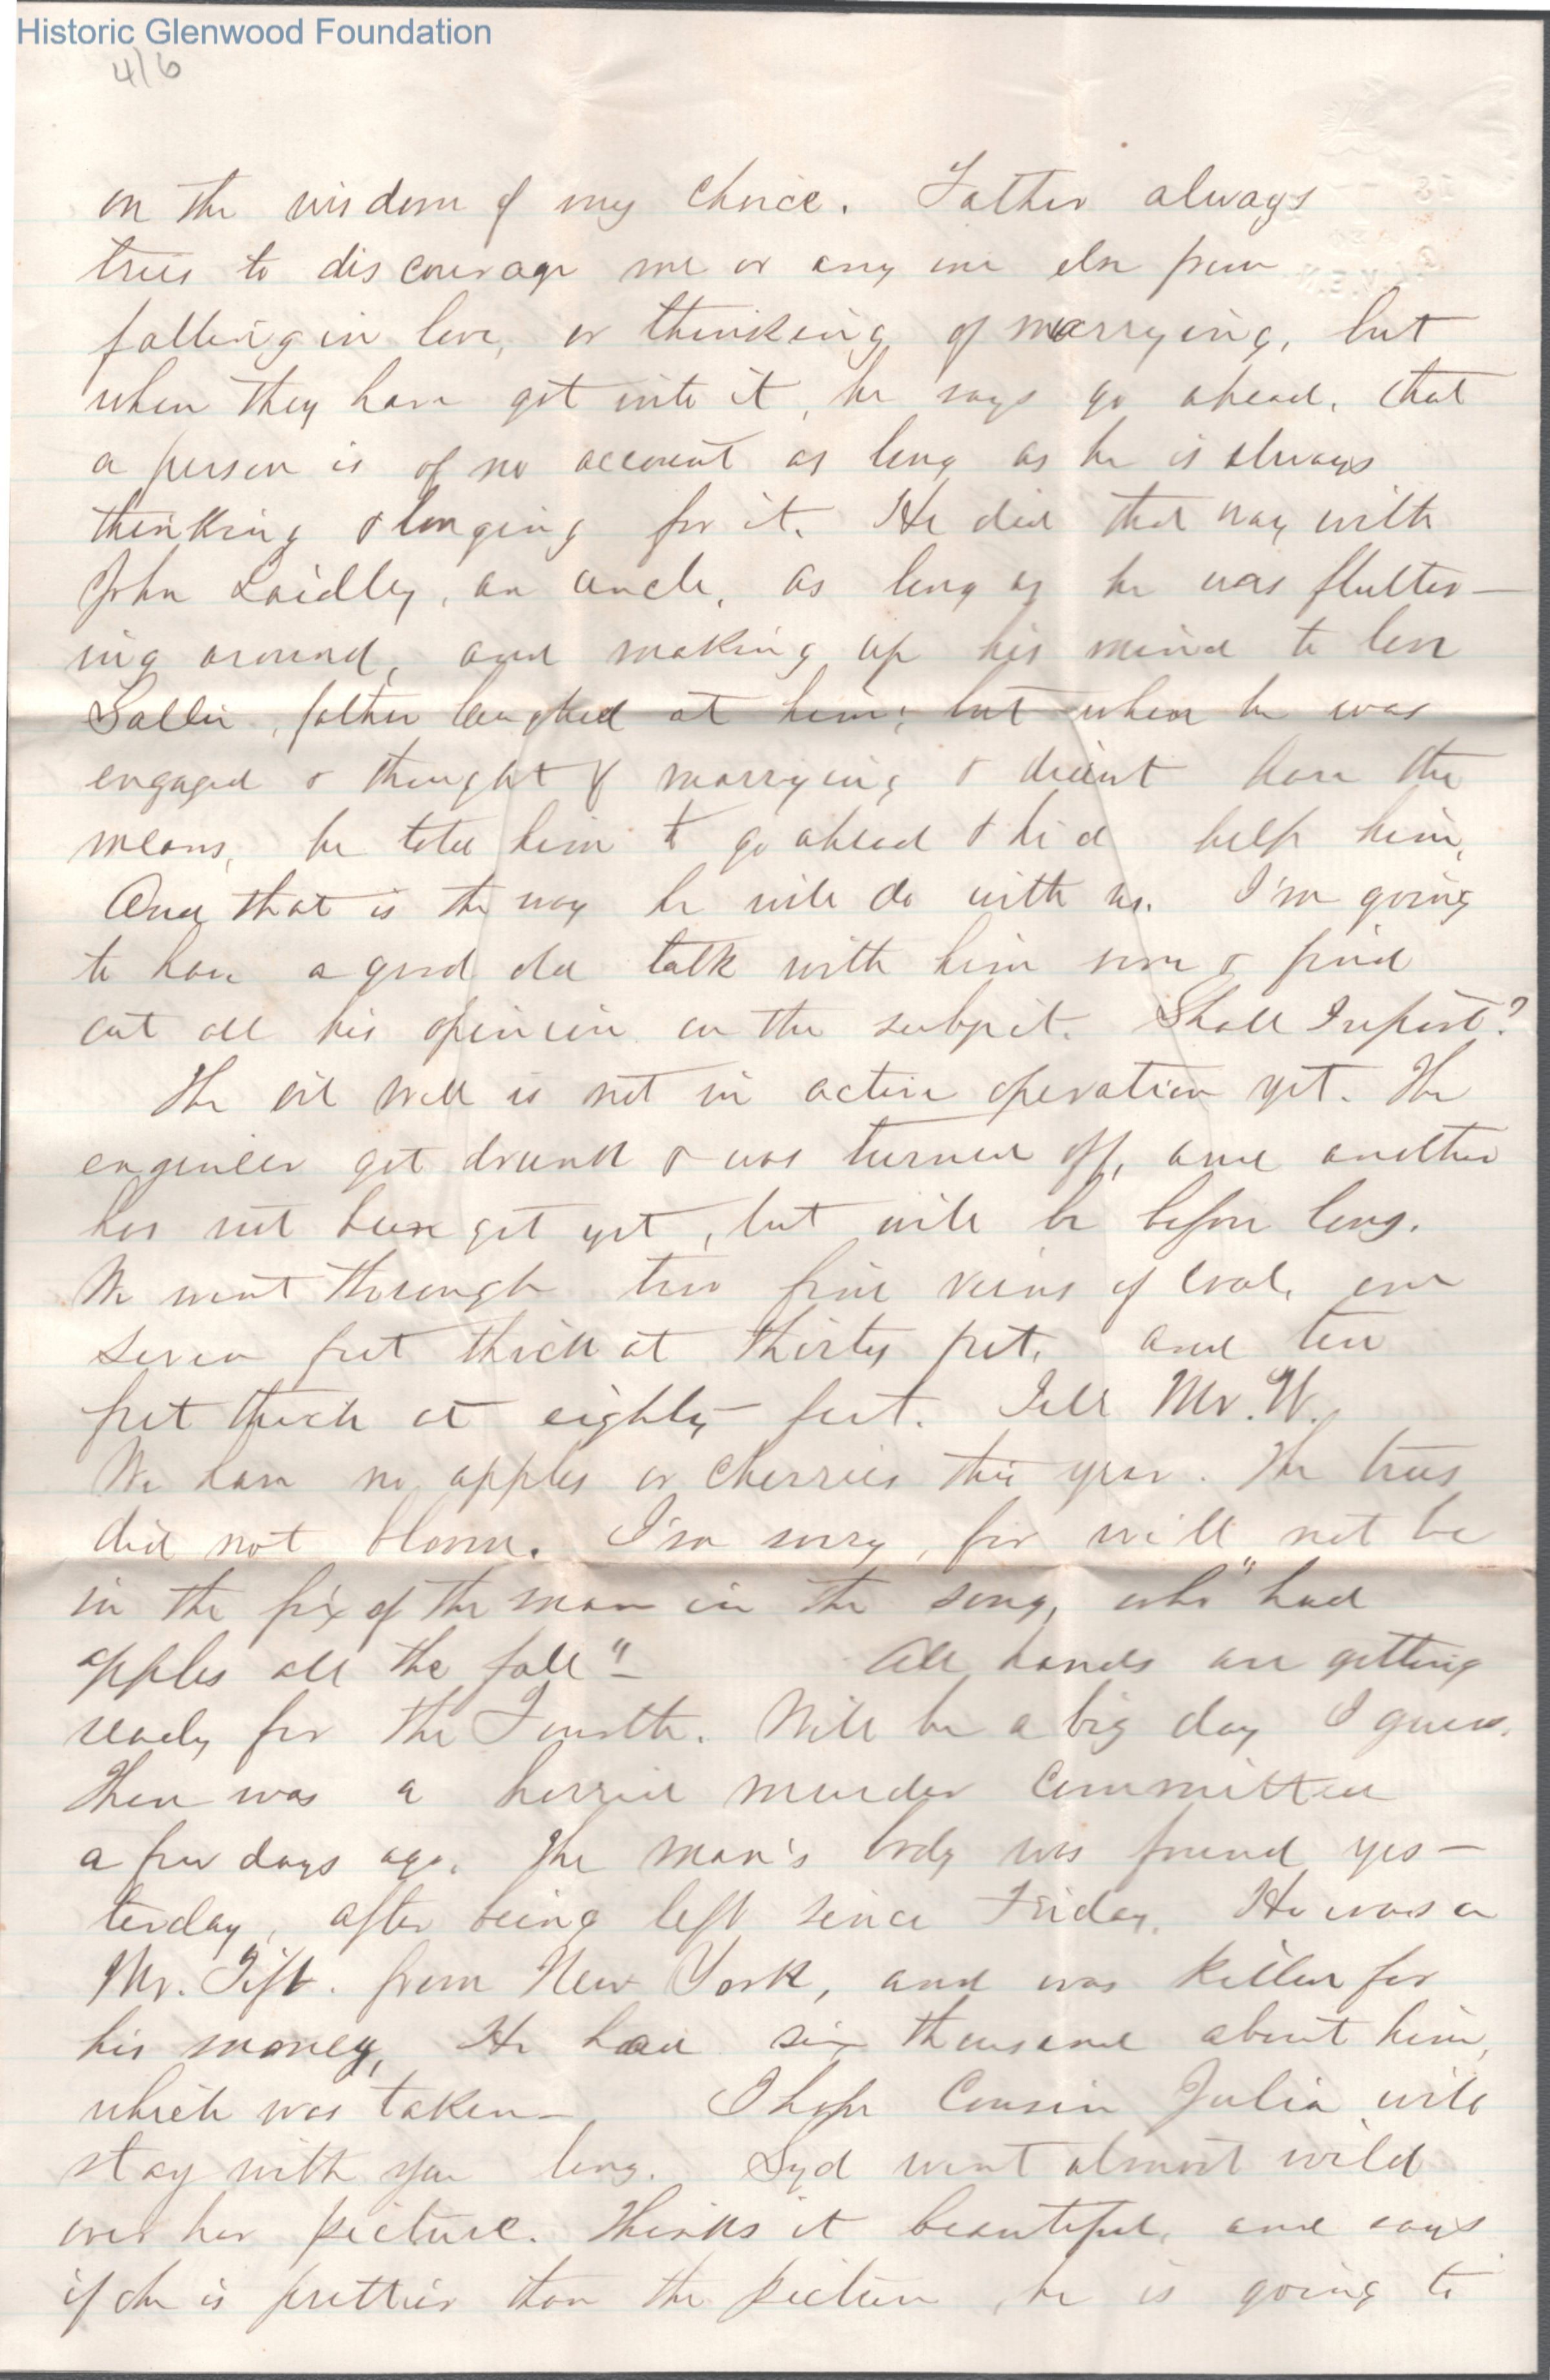 Historic Glenwood Foundation
4/6
on the wisdom of my choice. Father always
tries to discourage me or any one else from
falling in love, or thinking of marrying, but
when they have got into it, he says go ahead, that
a person is of no account as long as he is always
thinking & longing for it. He did that way with
John Laidley, an uncle, as long as he was flutter-
ing around, and making up his mind to love
Sallie, father laughed at him; but when he was
engaged & thought of marrying & didn't have the
means, he told him to go ahead & he'd help him,
And that is the way he will do with us. I'm going
to have a good old talk with him soon & find
out all his opinion on the subject. Shall I report?
The oil well is not in active operation yet. The
engineer got drunk & was turned off, and another
has not been got yet, but will be before long.
We went through two fine veins of coal, one
seven feet thick at thirty feet, and ten
feet thick at eighty feet. Tell Mr. W.
We have no apples or cherries this year. The trees
did not bloom. I'm sorry, for will not be
in the fix of the man in the song, who "had
apples all the fall"-    All hands are getting
ready for the Fourth. Will be a big day I guess.
There was a horrid murder committed
a few days ago. The man's body was found yes-
terday, after being left since Friday. He was a
Mr. Tift. from New York, and was killed for
his money, He had six thousand about him,
which was taken-    I hope Cousin Julia will
stay with you long. Syd went almost wild
over her picture. Thinks it beautiful, and says
if she is prettier than the picture, he is going to